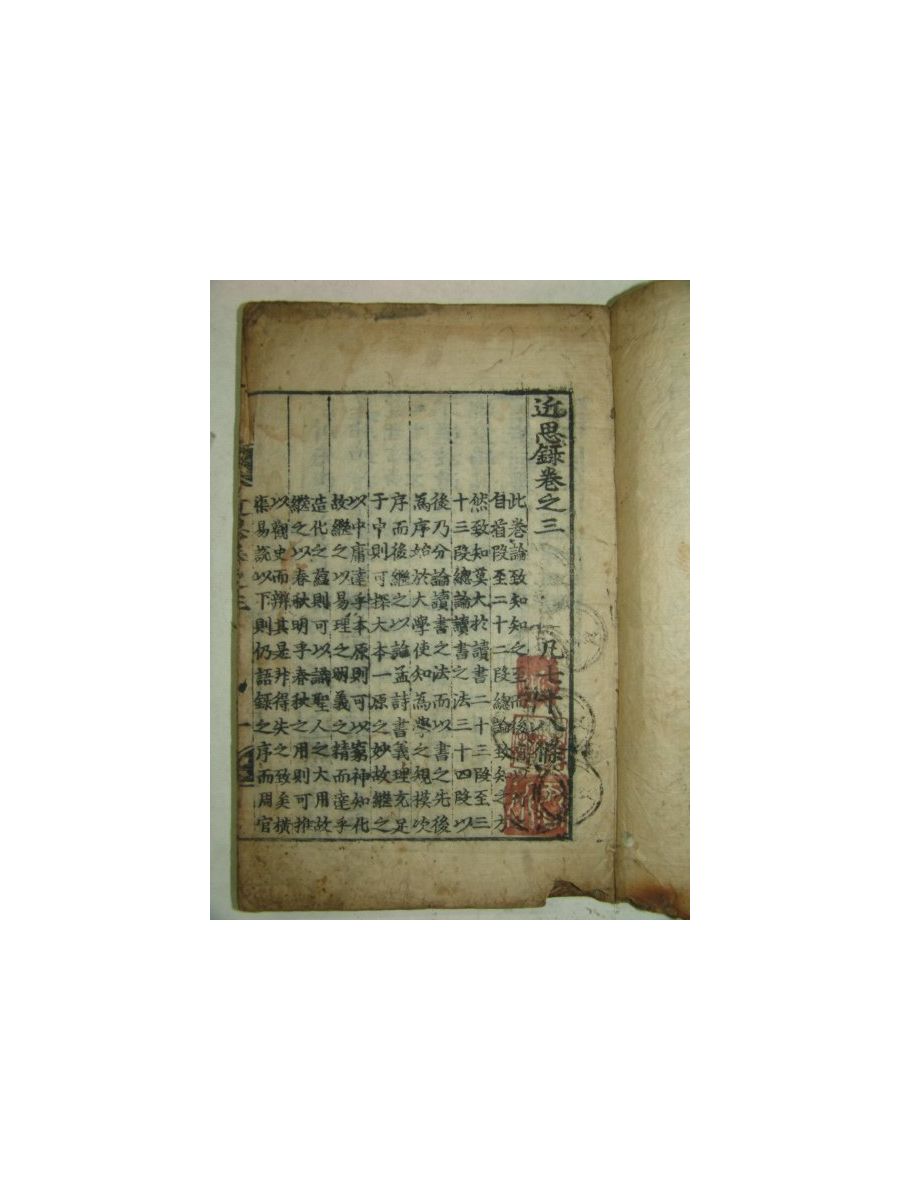 近思錄卷之三　凡七十八條
此卷論致知知之至而後有以行之
自首段至二十二段總論致知之方
然致知莫大於讀書二十三段至三
十三段總論讀書之法三十四段以
後乃分論讀書之法而以書之先後
爲序始於大學使知爲學之規模次
序而後繼之以論孟詩書義理充足
于中則可探大本一原之妙故繼之
以中庸達乎本原則可以窮神知化
故繼之以易理之明義之精而達乎
造化之蘊則可以識聖人之大用故
繼之以春秋明乎春秋之用則可推
以觀史而辨其是非得失之致矣橫
渠易說以下則仍語錄之序而周官